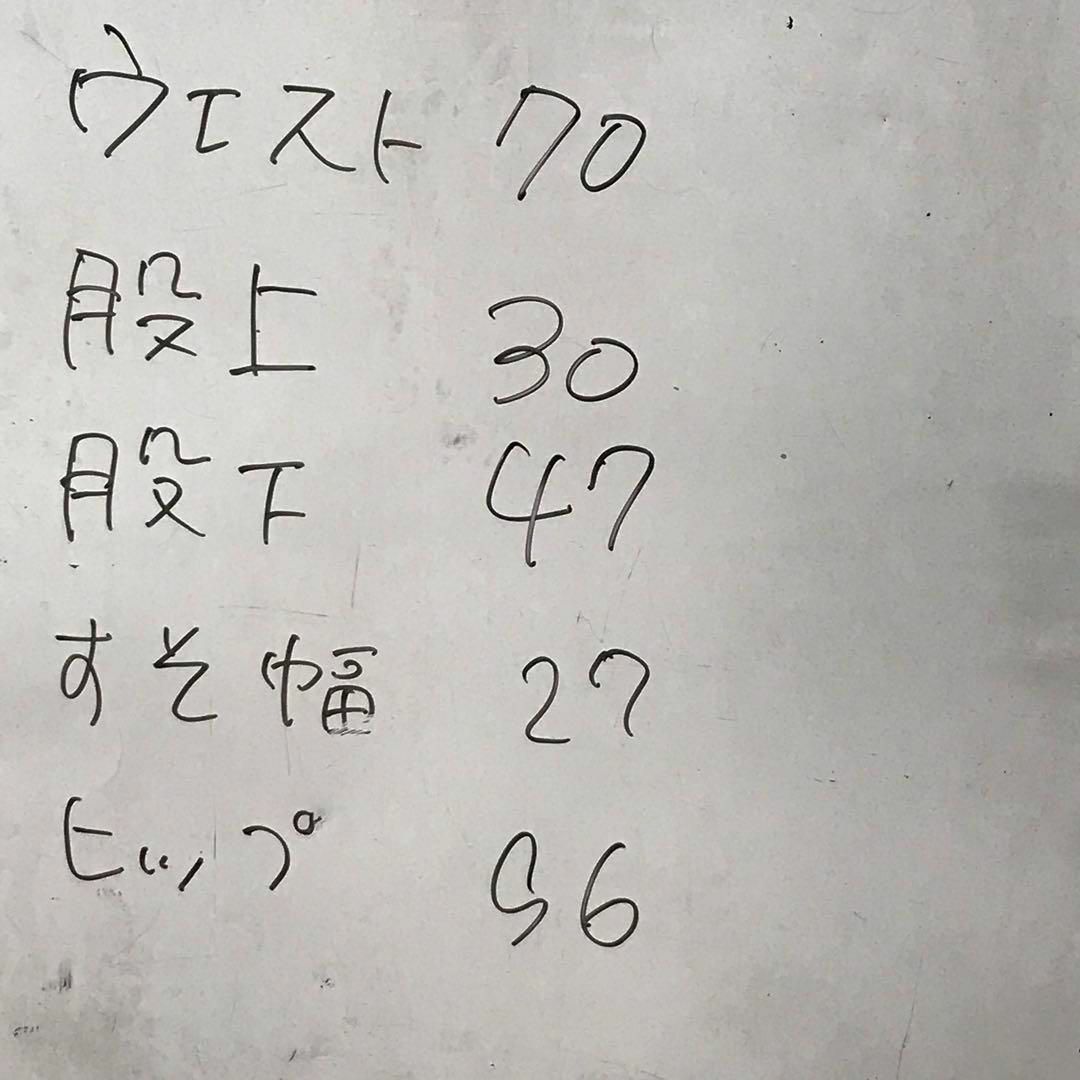 ウエスト 70
股上 30
股下 47
すそ幅 27
ヒップ 96